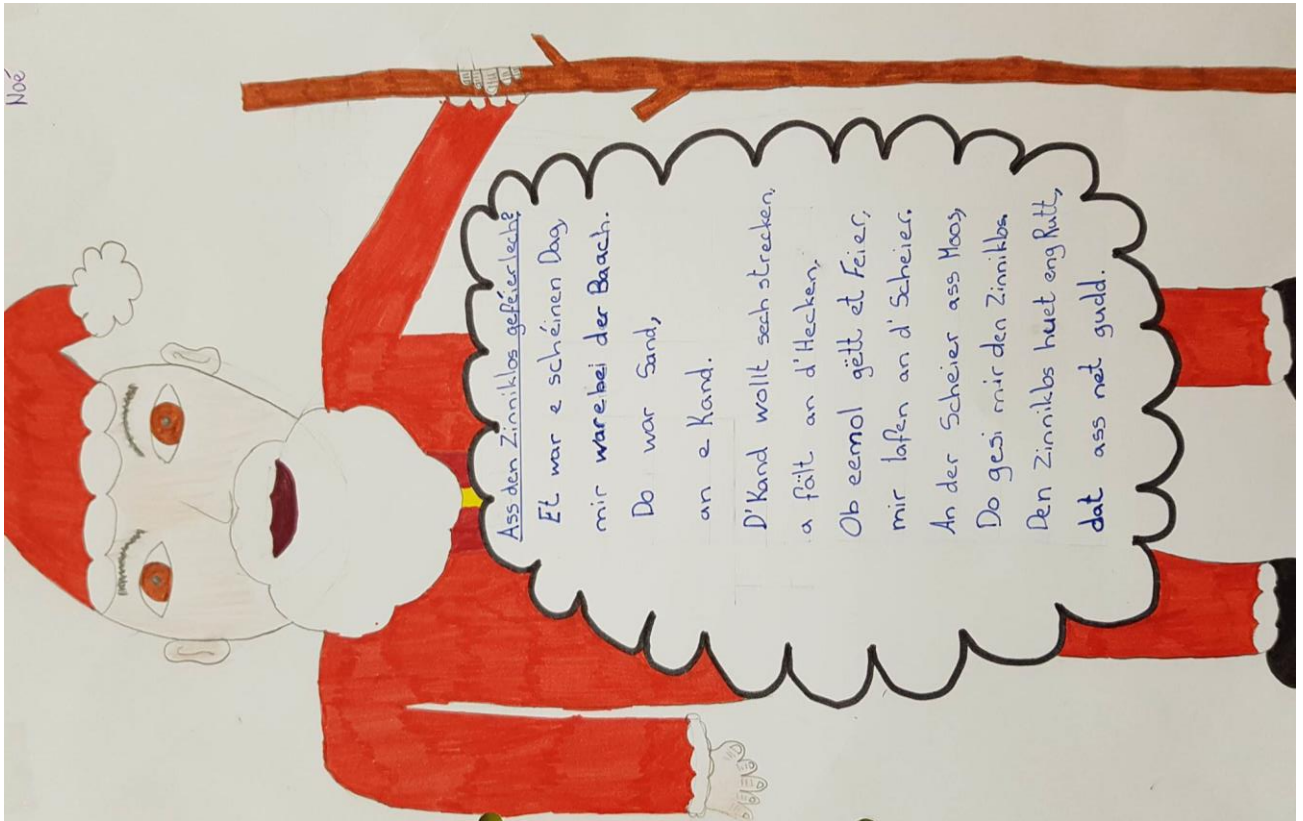 Noé
Ass den Zinniklos geféierlech?
Et war e schéinen Dag,
mir ware bei der Baach.
Do war Sand,
an e Kand.
D'Kand wollt sech strecken,
a fält an d'Hecken,
Ob eemol gëtt et Feier,
mir lafen an d'Scheier.
An der Scheier ass Moos,
Do gesi mir den Zinniklos.
Den Zinniklos huet eng Rutt,
dat ass net gudd.